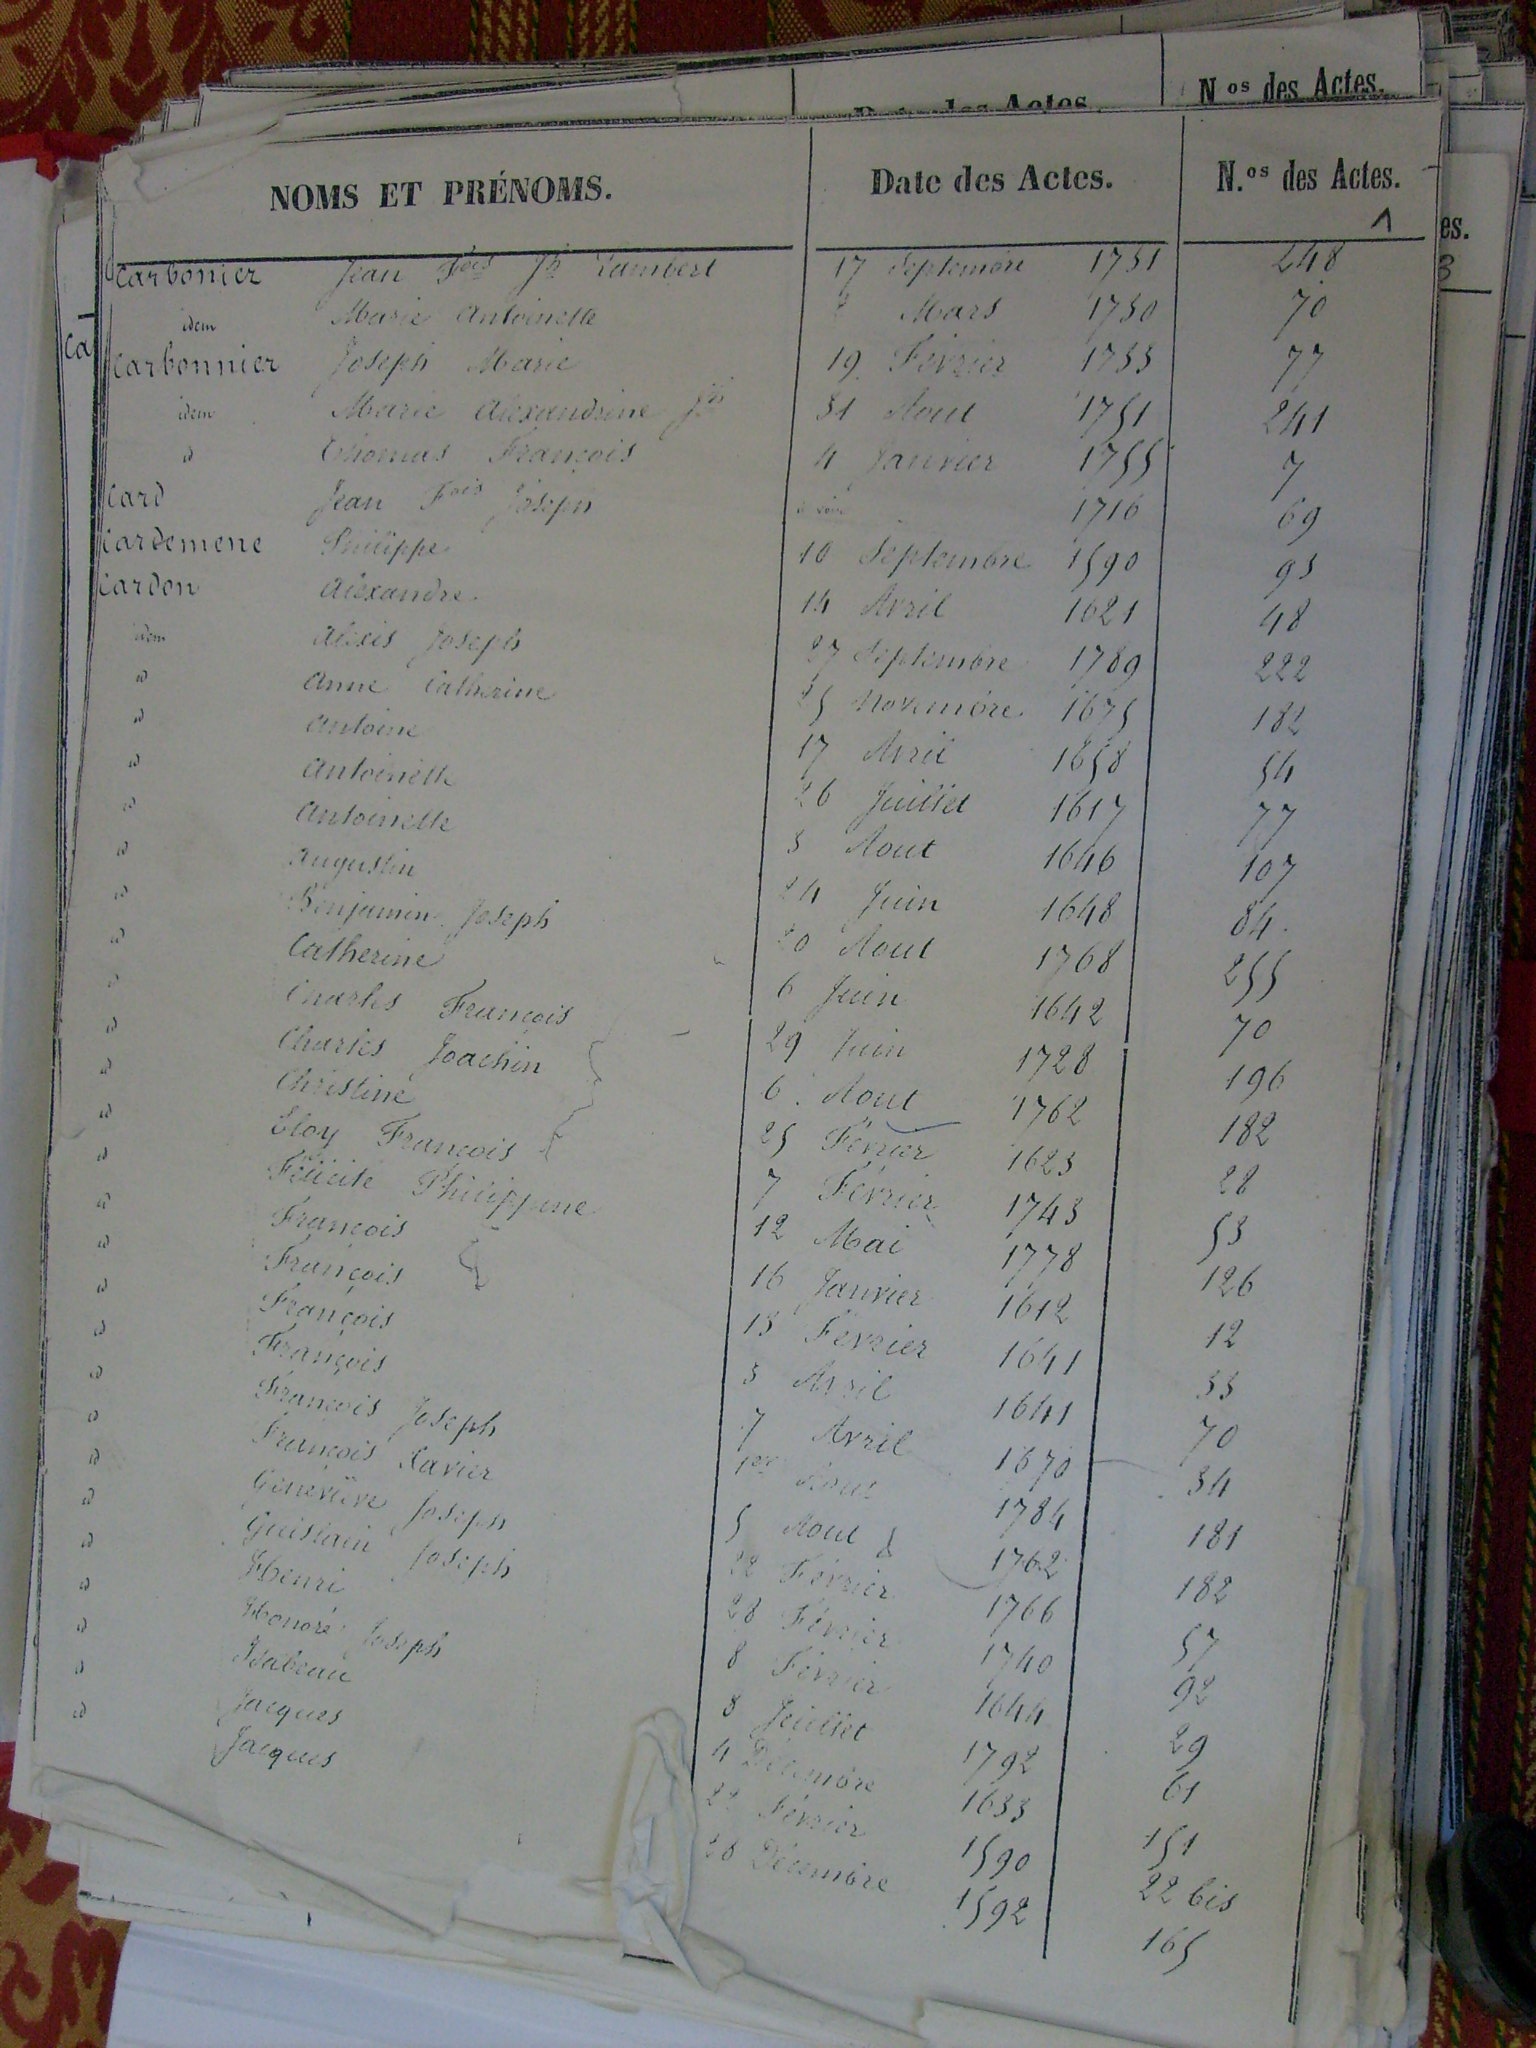 Date des Actes. Nos des Actes.
NOMS ET PRÉNOMS. Date des Actes. N.os des Actes.
Carbonier Jean Fois Jh Lambert 17 Septembre 1731 248
idem Marie Antoinette Mars 1730 70
Carbonnier Joseph Marie 19 Février 1733 77
idem Marie Alexandrine Jh 31 Aout 1751 241
id Thomas François 4 Janvier 1755 7
Card Jean Fois Joseph 1716 69
Cardemene Philippe 10 Septembre 1590 93
Cardon Alexandre 14 Avril 1621 48
idem Alexis Joseph 27 Septembre 1789 222
id Anne Catherine 25 Novembre 1675 182
id Antoine 17 Avril 1658 54
id Antoinette 26 Juillet 1617 77
id Antoinette 3 Aout 1646 107
id Augustin 24 Juin 1648 84
id Benjamin Joseph 20 Aout 1768 255
id Catherine 6 Juin 1642 70
id Charles François 29 Juin 1728 196
id Charles Joachin 6 Aout 1762 182
id Christine 25 Février 1623 28
id Eloy François 7 Février 1743 53
id Félicité Philippine 12 Mai 1778 126
id François 16 Janvier 1612 12
id François 13 Février 1641 33
id François 3 Avril 1641 70
id François 7 Avril 1670 34
id François Joseph 1er Aout 1784 181
id François Xavier 5 Aout 1762 182
id Geneviève Joseph 22 Février 1766 57
id Guislain Joseph 28 Février 1740 92
id Henri 8 Février 1644 29
id Honoré Joseph 8 Juillet 1792 61
id Isabeau 4 Décembre 1633 151
id Jacques 22 Février 1590 22 bis
id Jacques 26 Décembre 1592 165